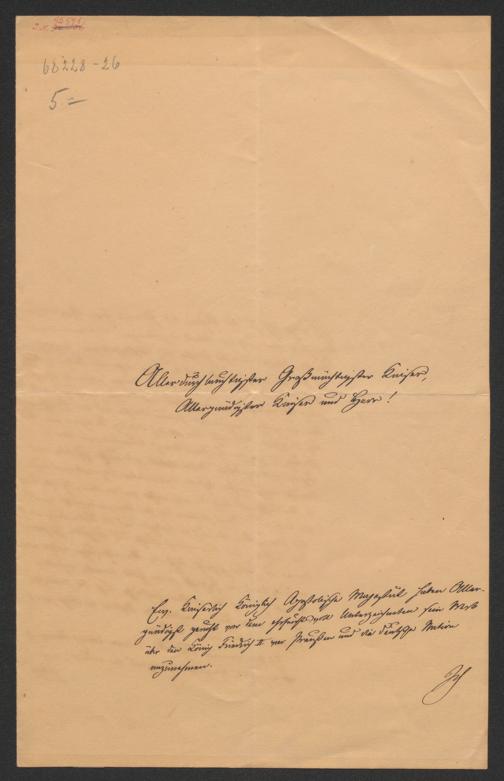 68228-26
5=
Allerdurchlauchtigster Großmächtigster Kaiser,
Allergnädigster Kaiser und Herr!
Ew. Kaiserlich Königlich Apostolische Majestät haben Aller-
gnädigst geruht von dem ehrfurchtsvoll Unterzeichneten sein Werk
über den König Friedrich II von Preußen und die deutsche Nation
anzunehmen.
Ich